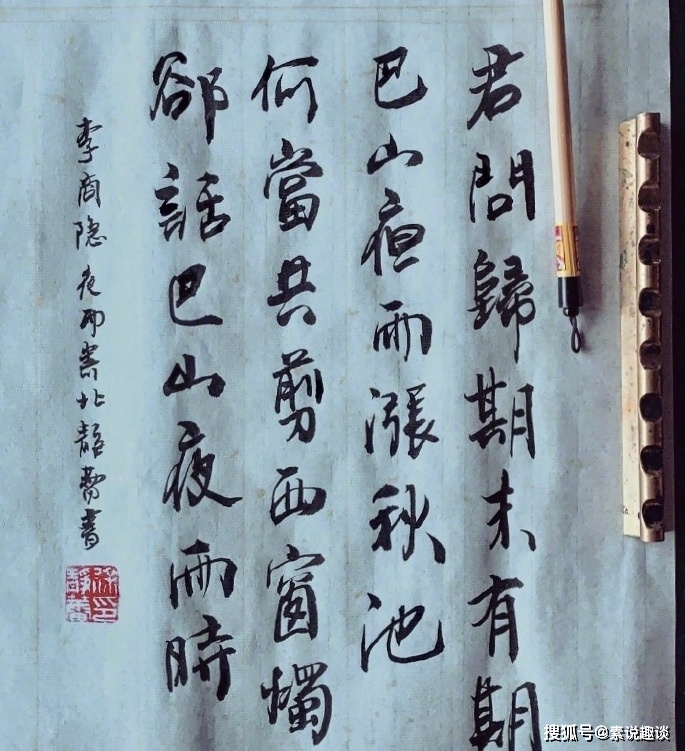 君問歸期未有期
巴山夜雨漲秋池
何當共剪西窗燭
卻話巴山夜雨時
李商隐夜雨寄北静蕾書
搜狐号@素说趣谈